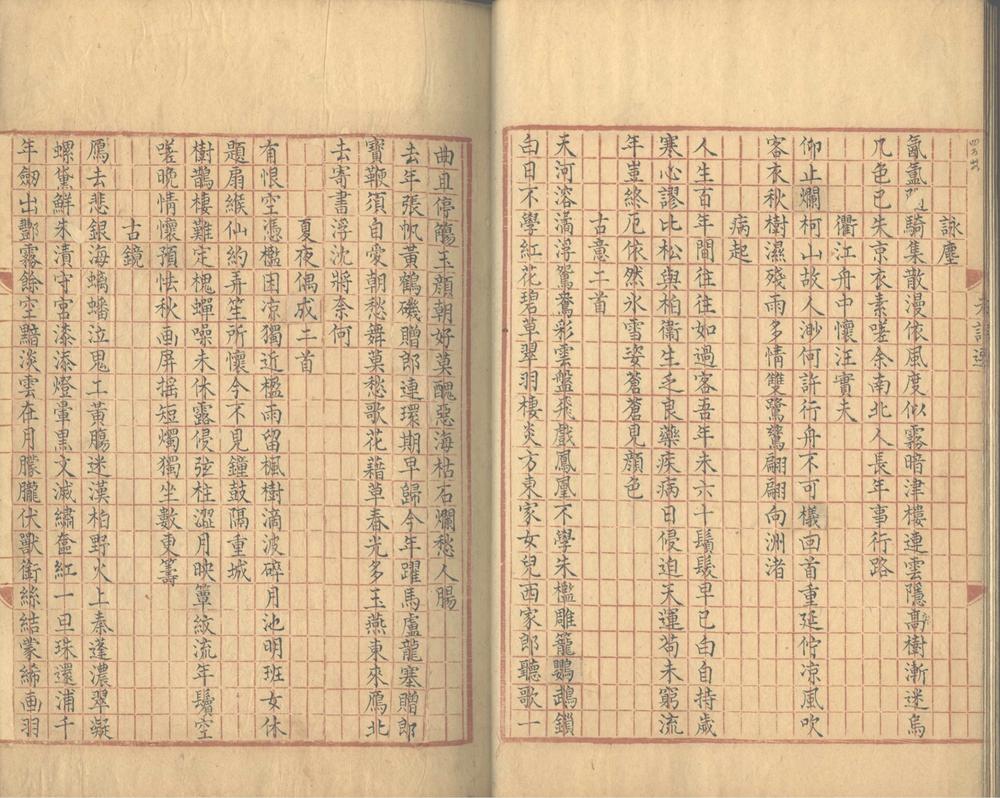 詠塵
氤氳隨騎集散漫依風度似霧暗津樓連雲隱高樹漸迷烏
几色已朱京衣素嗟余南北人長年事行路
衢江舟中懷汪實夫
仰止爛柯山故人渺何許行舟不可檥回首重延佇凉風吹
客衣秋樹濕殘雨多情雙鷺鶿翩翩向洲渚
病起
人生百年間往往如過客吾年未六十鬚髮早已白自持歲
寒心謬比松與柏衞生乏良藥疾病日侵迫天運苟未窮流
年豈終厄依然氷雪姿蒼蒼見顔色
古意二首
天河溶滴浮鴛鴦彩雲盤飛戲鳳凰不學朱檻雕籠鸚鵡鎖
白日不學紅花碧草翠羽棲炎方東家女兒西家郎聽歌一
曲且停觴玉顔朝好莫醜惡海枯石爛愁人腸
去年張帆黃鶴磯贈郎連環期早歸今年躍馬盧龍塞贈郎
寶鞭須自愛朝愁舞莫愁歌花藉草春光多玉燕東來鴈北
去寄書浮沈將奈何
夏夜偶成二首
有恨空憑檻困凉獨近楹雨留楓樹滴波碎月池明班女休
題扇緱仙約弄笙所懷今不見鐘鼓隔重城
樹鵲棲難定槐蟬噪未休露侵弦柱澀月映簟紋流年鬢空
嗟晚情懷預怯秋画屏搖短燭獨坐數更籌
古鏡
鴈去悲銀海螭蟠泣鬼工黃腸迷漢柏野火上秦蓬濃翠凝
螺黛鮮朱漬守宮漆添燈暈黒文滅繡奩紅一旦珠還浦千
年劒出酆霧餘空黯淡雲在月朦朧伏獸銜絲結蒙絺画羽